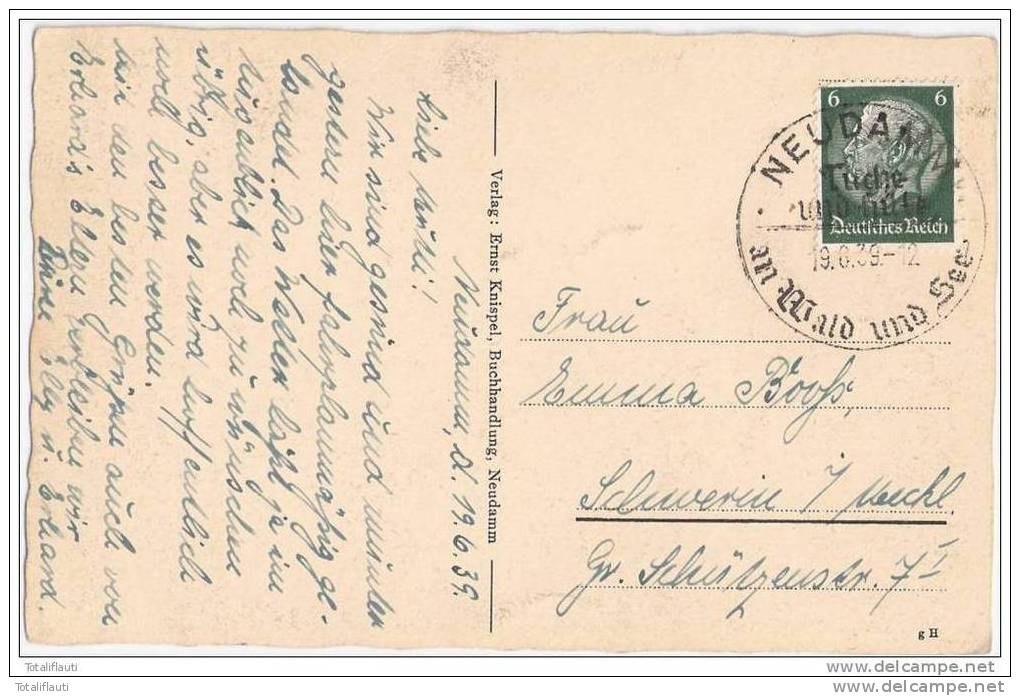 Neudamm, d. 19.6.39.
Liebe Mutti!
Wir sind gesund und munter
gestern hier fahrplanmäßig ge-
landet. Das Wetter läßt ja im
Augenblick viel zu wünschen
übrig, aber es wird hoffentlich
noch besser werden.
Mit den besten Grüßen auch von
Erhard's Eltern verbleiben wir
Deine Elly u. Erhard.
Verlag: Ernst Knispel, Buchhandlung, Neudamm
6 6
Deutsches Reich
NEUDAMM
Tuche
und Hüte
19.6.39.-12
Wald und See
Frau
Emma Booß,
Schwerin i/Meckl.
Gr. Schützenstr. 7 I
g H
Totaliflauti
Totaliflauti
www.delcampe.net
www.delcampe.net